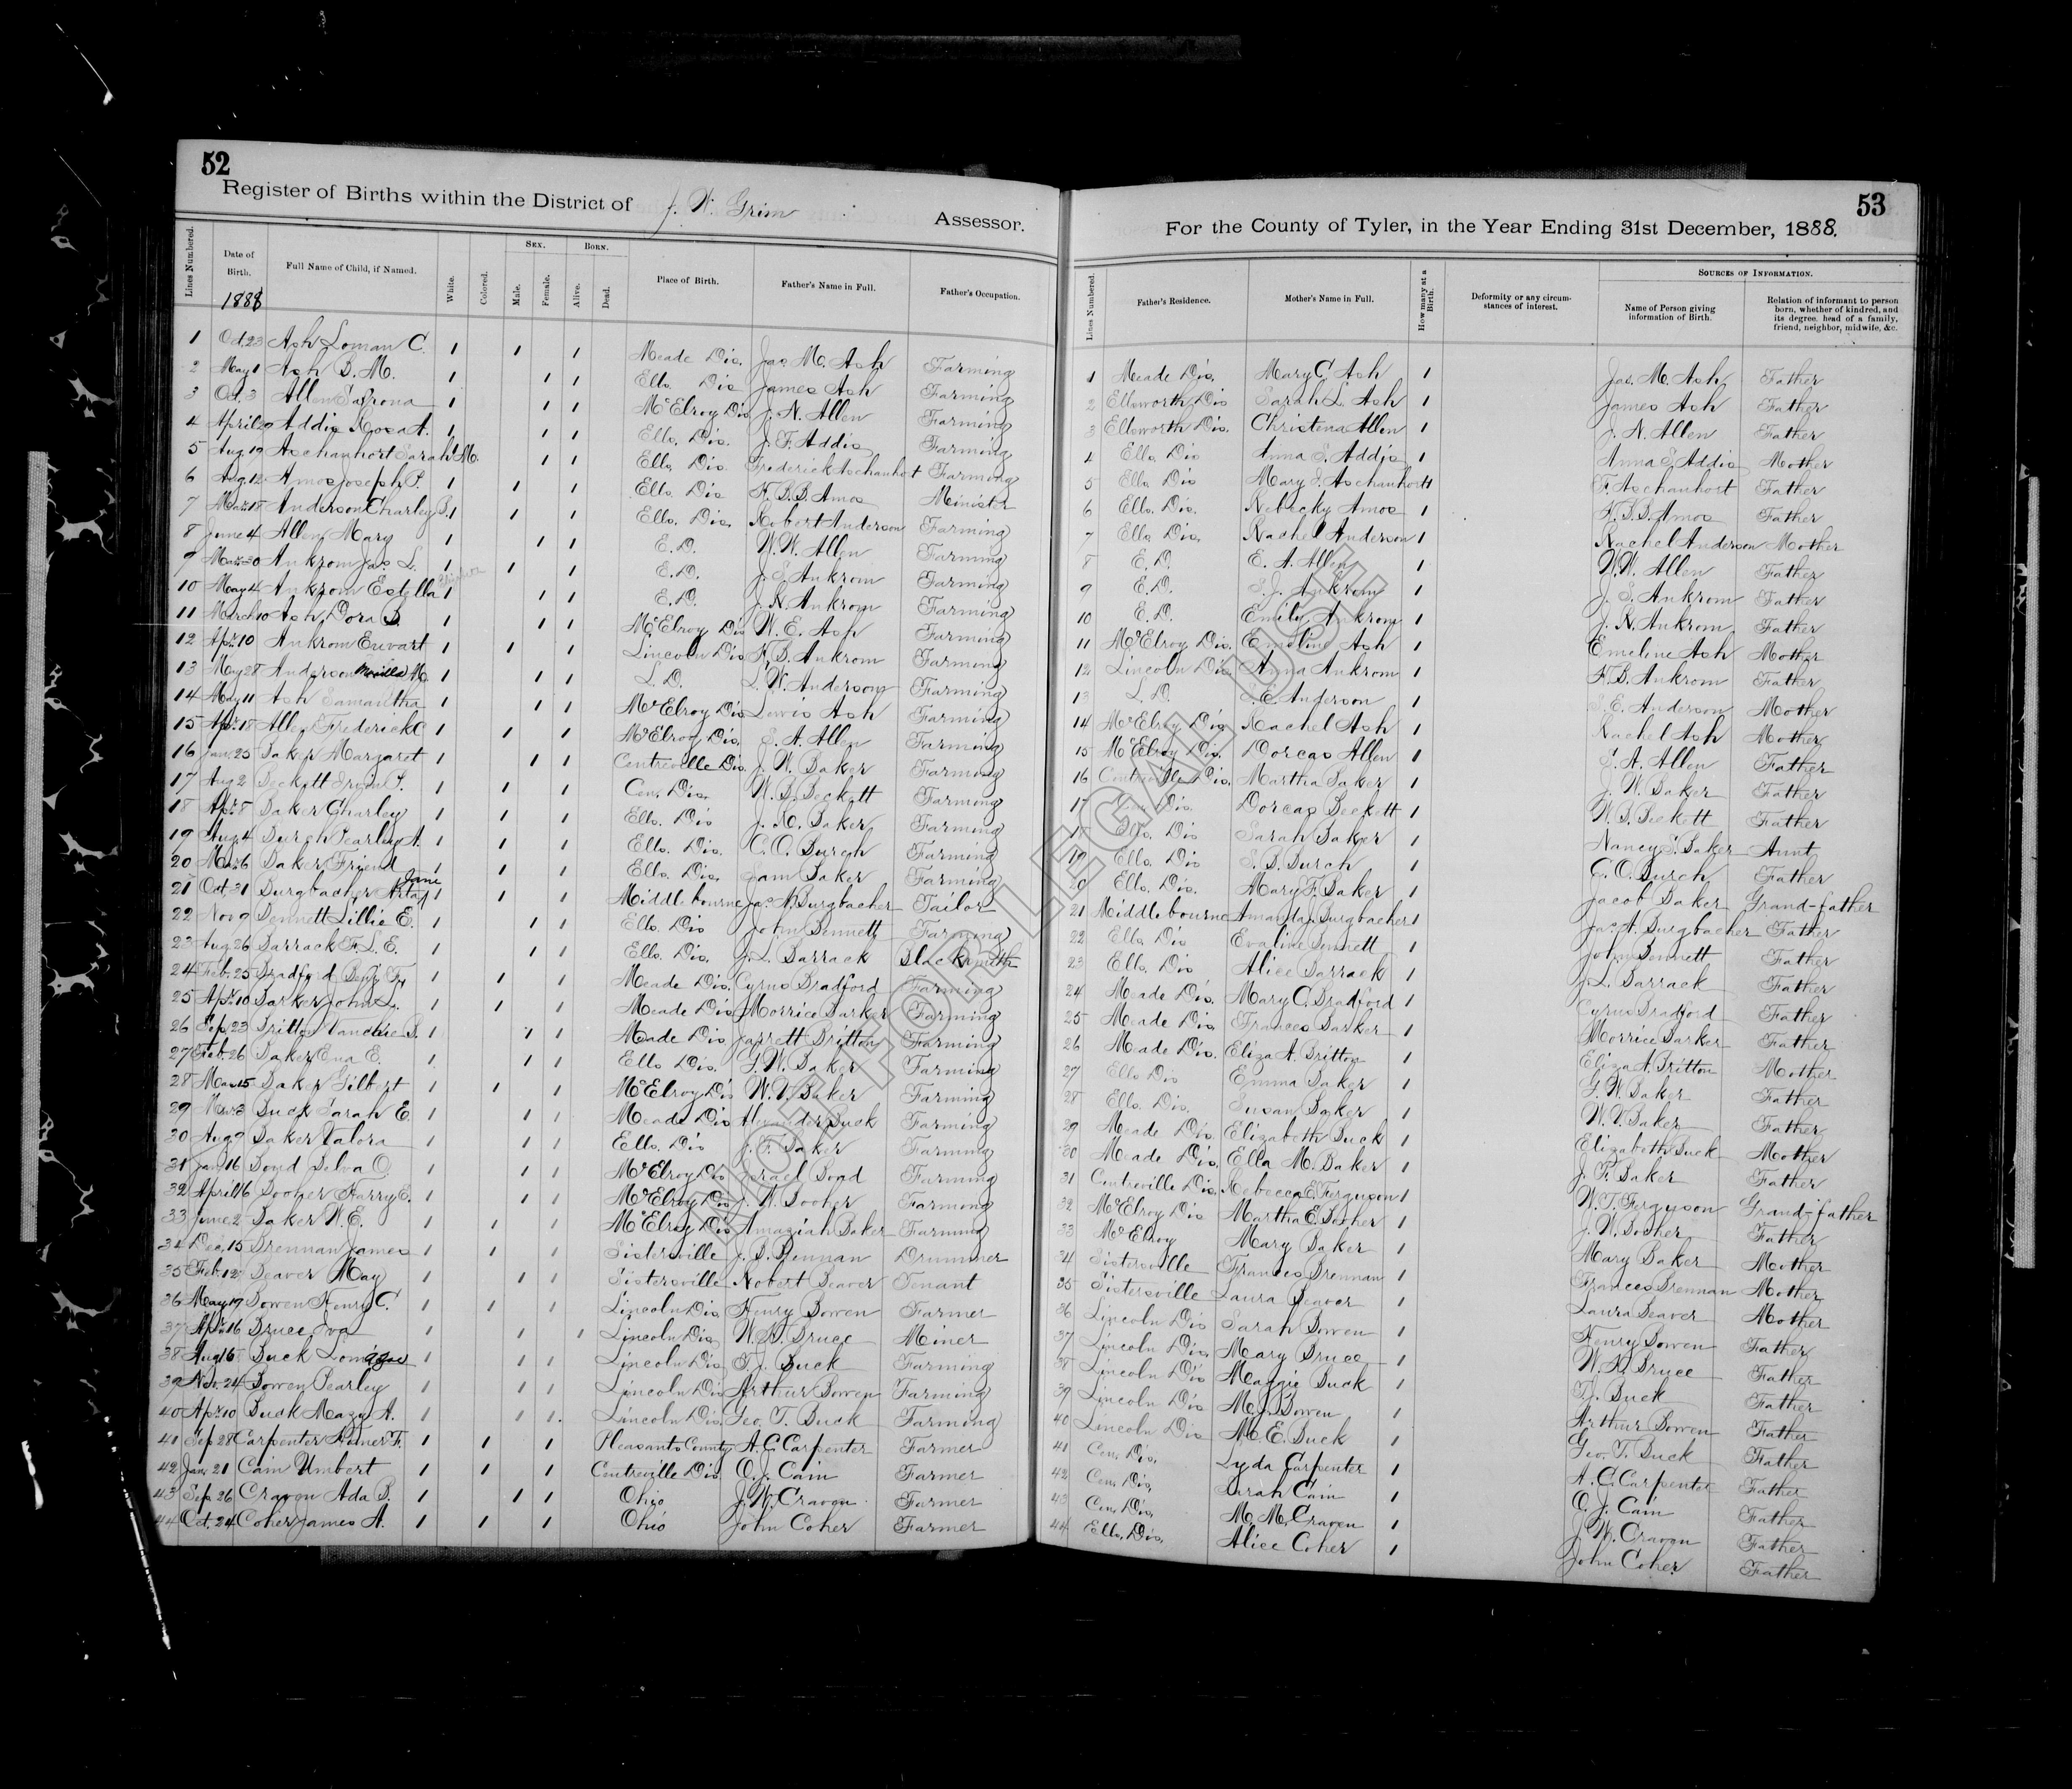 52
Register of Births within the District of J. W. Grim Assessor.
Lines Numbered. Date of Birth. Full Name of Child, if Named. White. Colored. Sex. Male. Female. Born. Alive. Dead. Place of Birth. Father's Name in Full. Father's Occupation.
1888
1 Oct. 23 Ash Loman C. 1 1 1 Meade Dis. Jas. M. Ash Farming
2 May 1 Ash B. M. 1 1 1 Ells. Dis James Ash Farming
3 Oct. 3 Allen 1 1 1 McElroy Dis. J. N. Allen Farming
4 April 20 Addis Rosa A. 1 1 1 Ells. Dis. J. F. Addis Farming
5 Aug. 19 Aschanhort Sarah M. 1 1 Ells. Dis Frederick Aschanhort Farming
6 Aug. 12 Amos Joseph P. 1 1 1 Ells. Dis Amos Minister
7 Mar. 18 Anderson Charley B. 1 1 1 Ells. Dis. Robert Anderson Farming
8 June 4 Allen Mary 1 1 1 E. D. W. W. Allen Farming
9 Mar. 30 Ankrom Jas. L. 1 1 1 E. D. J. S. Ankrom Farming
10 May 4 Ankrom Estella 1 1 1 E. D. J. N. Ankrom Farming
11 March 10 Ash Dora B. 1 1 1 McElroy Dis W. E. Ash Farming
12 Apr. 10 Ankrom Ewart 1 1 1 Lincoln Dis Ankrom Farming
13 May 28 Anderson M. 1 1 1 L. D. L. W. Anderson Farming
14 May 11 Ash Samantha 1 1 1 McElroy Dis Lewis Ash Farming
15 Apr. 18 Allen Frederick C 1 1 1 McElroy Dis. S. A. Allen Farming
16 Jan. 25 Baker Margaret 1 1 1 Centreville Dis. J. W. Baker Farming
17 Aug 2 Beckett 1 1 1 Cen. Dis. W. B. Beckett Farming
18 Apr. 8 Baker Charley 1 1 1 Ells. Dis Baker Farming
19 Aug. 4 Burch Pearley A. 1 1 1 Ells. Dis. C. O. Burch Farming
20 Mar. 6 Baker Friend 1 1 1 Ells. Dis. Sam Baker Farming
21 Oct. 31 Burgbacher Jane 1 1 1 Middlebourne Jas. A. Burgbacher Tailor
22 Nov 9 Bennett Lillie E. 1 1 1 Ells. Dis John Bennett Farming
23 Aug. 26 Barrack F. L. E. 1 1 1 Ells. Dis. J. L. Barrack Blacksmith
24 Feb. 25 Bradford Benj. F. 1 1 1 Meade Dis. Cyrus Bradford Farming
25 Apr. 10 Barker John L. 1 1 1 Meade Dis Morrice Barker Farming
26 Sep. 23 Britton B. 1 1 1 Meade Dis Jarrett Britton Farming
27 Feb. 26 Baker Ena E. 1 1 1 Ells. Dis. G. W. Baker Farming
28 Mar. 15 Baker Gilbert 1 1 1 McElroy Dis W. V. Baker Farming
29 Mar. 3 Buck Sarah E. 1 1 1 Meade Dis Alexander Buck Farming
30 Aug. 9 Baker Valora 1 1 1 Ells. Dis J. F. Baker Farming
31 Jan. 16 Bond Delva O. 1 1 1 McElroy Dis Israel Bond Farming
32 April 16 Booher Harry E. 1 1 1 McElroy Dis J. W. Booher Farming
33 June 2 Baker W. E. 1 1 1 McElroy Dis Amaziah Baker Farming
34 Dec. 15 Brennan James 1 1 1 Sistersville J. B. Brennan Drummer
35 Feb. 12 Beaver May 1 1 1 Sistersville Robert Beaver Tenant
36 May 17 Bowen Henry C. 1 1 1 Lincoln Dis. Henry Bowen Farmer
37 Apr. 16 Bruce Iva 1 1 1 Lincoln Dis. W. N. Bruce Miner
38 Aug 16 Buck 1 1 1 Lincoln Dis T. J. Buck Farming
39 Nov. 24 Bowen Pearley 1 1 1 Lincoln Dis Arthur Bowen Farming
40 Apr. 10 Buck Mazy A. 1 1 1 Lincoln Dis. Geo. T. Buck Farming
41 Sep 28 Carpenter Homer F. 1 1 1 Pleasants County A. C. Carpenter Farmer
42 Jan. 21 Cain Umbert 1 1 1 Centreville Dis. O. J. Cain Farmer
43 Sep. 26 Craven Ada B. 1 1 1 Ohio J. W. Craven Farmer
44 Oct. 24 Coher James A. 1 1 1 Ohio John Coher Farmer
53
For the County of Tyler, in the Year Ending 31st December, 1888.
Lines Numbered. Father's Residence. Mother's Name in Full. How many at a Birth. Deformity or any circumstances of interest. Sources of Information. Name of Person giving information of Birth. Relation of informant to person born, whether of kindred, and its degree, head of a family, friend, neighbor, midwife, &c.
1 Meade Dis. Mary C. Ash 1 Jas. M. Ash Father
2 Ellsworth Dis Sarah L. Ash 1 James Ash Father
3 Ellsworth Dis. Christena Allen 1 J. N. Allen Father
4 Ells. Dis Anna S. Addis 1 Anna S. Addis Mother
5 Ells. Dis Mary S. Aschanhort 1 F. Aschanhort Father
6 Ells. Dis. Rebecky Amos 1 Amos Father
7 Ells. Dis. Rachel Anderson 1 Rachel Anderson Mother
8 E. D. E. A. Allen 1 W. W. Allen Father
9 E. D. S. J. Ankrom 1 J. S. Ankrom Father
10 E. D. Emily Ankrom 1 J. N. Ankrom Father
11 McElroy Dis. Emeline Ash 1 Emeline Ash Mother
12 Lincoln Dis. Anna Ankrom 1 Ankrom Father
13 L. D. S. E. Anderson 1 S. E. Anderson Mother
14 McElroy Dis. Rachel Ash 1 Rachel Ash Mother
15 McElroy Dis. Dorcas Allen 1 S. A. Allen Father
16 Centreville Dis. Martha Baker 1 J. W. Baker Father
17 Cen. Dis. Dorcas Beckett 1 W. B. Beckett Father
18 Ells. Dis Sarah Baker 1 Nancy S. Baker Aunt
19 Ells. Dis S. B. Burch 1 C. O. Burch Father
20 Ells. Dis. Mary F. Baker 1 Jacob Baker Grand-father
21 Middlebourne Amanda J. Burgbacher 1 Jas. A. Burgbacher Father
22 Ells. Dis Evaline Bennett 1 John Bennett Father
23 Ells. Dis Alice Barrack 1 J. L. Barrack Father
24 Meade Dis. Mary C. Bradford 1 Cyrus Bradford Father
25 Meade Dis. Frances Barker 1 Morrice Barker Father
26 Meade Dis. Eliza A. Britton 1 Eliza A. Britton Mother
27 Ells Dis Emma Baker 1 G. W. Baker Father
28 Ells. Dis. Susan Baker 1 W. V. Baker Father
29 Meade Dis. Elizabeth Buck 1 Elizabeth Buck Mother
30 Meade Dis. Ella M. Baker 1 J. F. Baker Father
31 Centreville Dis. Rebecca E. Ferguson 1 W. T. Ferguson Grand-father
32 McElroy Dis Martha E. Booher 1 J. W. Booher Father
33 McElroy Mary Baker 1 Mary Baker Mother
34 Sistersville Frances Brennan 1 Frances Brennan Mother
35 Sistersville Laura Beaver 1 Laura Beaver Mother
36 Lincoln Dis Sarah Bowen 1 Henry Bowen Father
37 Lincoln Dis. Mary Bruce 1 W. N. Bruce Father
38 Lincoln Dis Maggie Buck 1 T. J. Buck Father
39 Lincoln Dis M. J. Bowen 1 Arthur Bowen Father
40 Lincoln Dis M. E. Buck 1 Geo. T. Buck Father
41 Cen. Dis. Lyda Carpenter 1 A. C. Carpenter Father
42 Cen. Dis. Sarah Cain 1 O. J. Cain Father
43 Cen. Dis. M. M. Craven 1 J. W. Craven Father
44 Ells. Dis. Alice Coher 1 John Coher Father
NOT FOR LEGAL USE